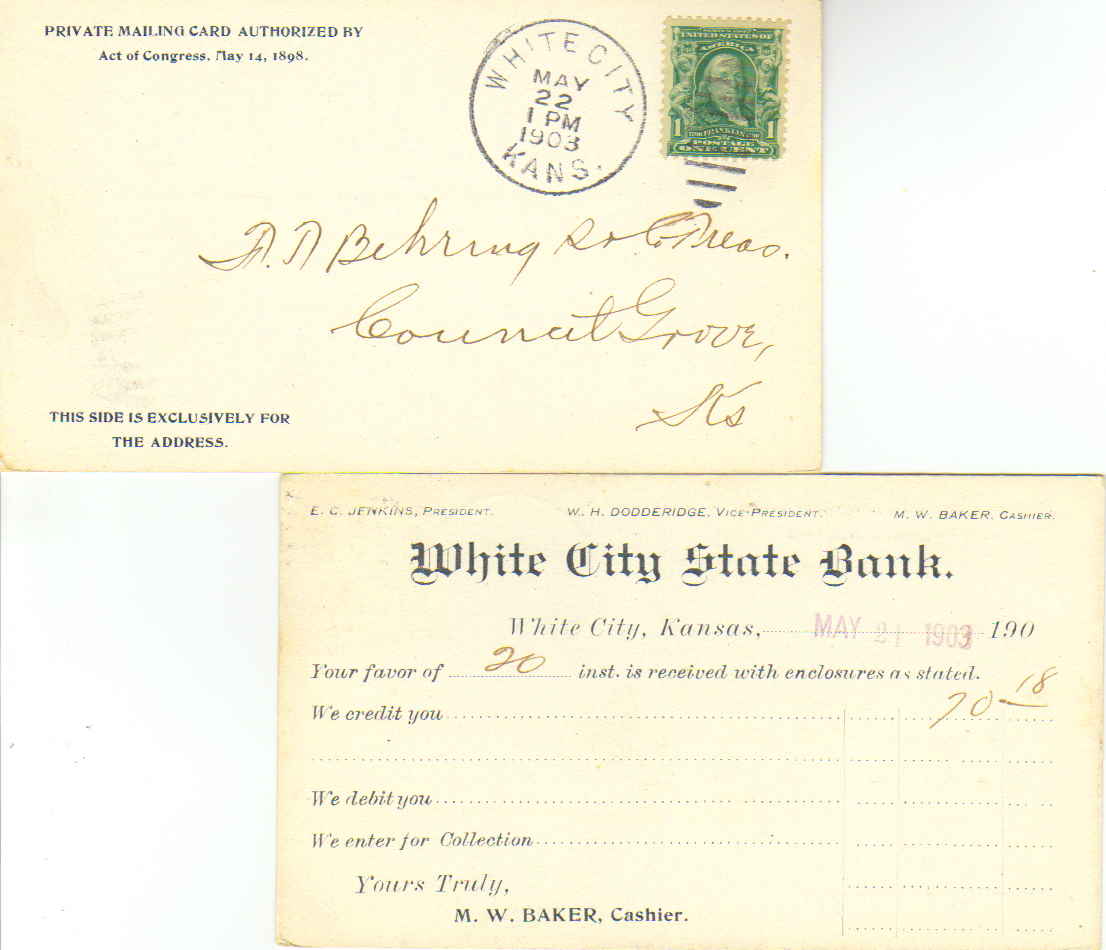 PRIVATE MAILING CARD AUTHORIZED BY
Act of Congress, May 14, 1898.
WHITE CITY
MAY
22
1 PM
1903
KANS.
UNITED STATES OF
AMERICA
1 FRANKLIN 1
POSTAGE
ONE CENT
Behring Co Treas.
Council Grove,
Ks
THIS SIDE IS EXCLUSIVELY FOR
THE ADDRESS.
E. C. JENKINS, PRESIDENT. W. H. DODDERIDGE, VICE-PRESIDENT. M. W. BAKER, CASHIER.
White City State Bank.
White City, Kansas, MAY 21 1903 190
Your favor of 20 inst. is received with enclosures as stated.
We credit you 70-18
We debit you
We enter for Collection
Yours Truly,
M. W. BAKER, Cashier.